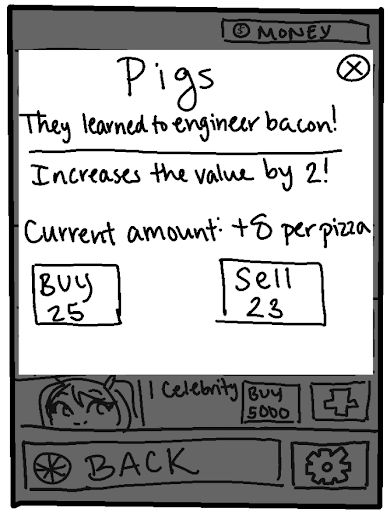 MONEY
Pigs
They learned to engineer bacon!
Increases the value by 2!
Current amount: +8 per pizza
Buy
25
Sell
23
1 Celebrity
Buy
5000
BACK